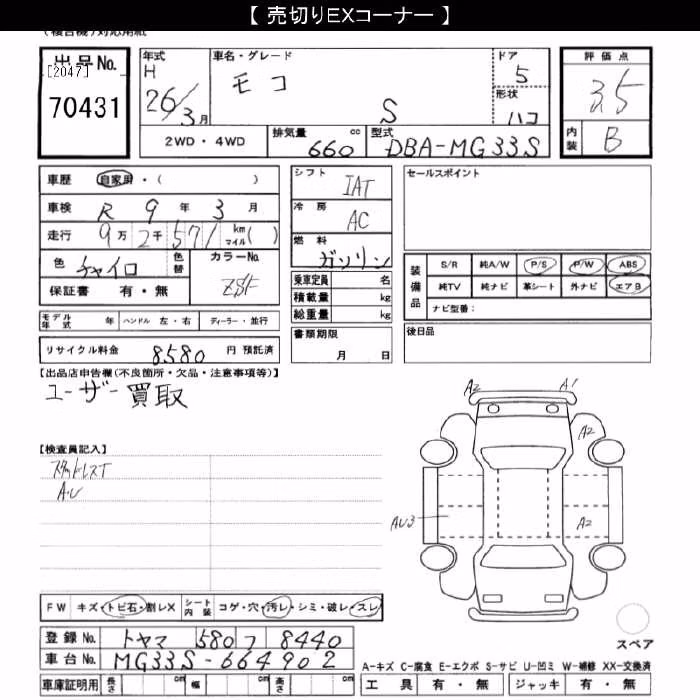 【 売切りEXコーナー 】
出品No.
[2047]
70431
年式
H
26/3月
車名・グレード
モコ
S
ドア
5
形状
ハコ
評価点
3.5
内装
B
2WD・4WD
排気量 660 cc
型式 DBA-MG33S
車歴 自家用・( )
車検 R 9 年 3 月
走行 9万2千571 km マイル( )
色 チャイロ 色替
カラーNo. Z8F
保証書 有・無
モデル年式 年 ハンドル 左・右 ディーラー・並行
リサイクル料金 8580 円 預託済
シフト IAT
冷房 AC
燃料 ガソリン
乗車定員 名
積載量 kg
総重量 kg
書類期限
月 日
セールスポイント
装備品
S/R 純A/W P/S P/W ABS
純TV 純ナビ 革シート 外ナビ エアB
ナビ型番:
後日品
【出品店申告欄(不良箇所・欠品・注意事項等)】
ユーザー買取
【検査員記入】
A・U
A2
A1
A2
AU3
A2
FW キズ・トビ石・割レX シート内装 コゲ・穴・汚レ・シミ・破レ・スレ
登録No. トヤマ 580 フ 8440
車台No. MG33S-664902
車庫証明用 長さ cm 幅 cm 高さ cm
スペア
A-キズ C-腐食 E-エクボ S-サビ U-凹ミ W-補修 XX-交換済
工具 有・無 ジャッキ 有・無